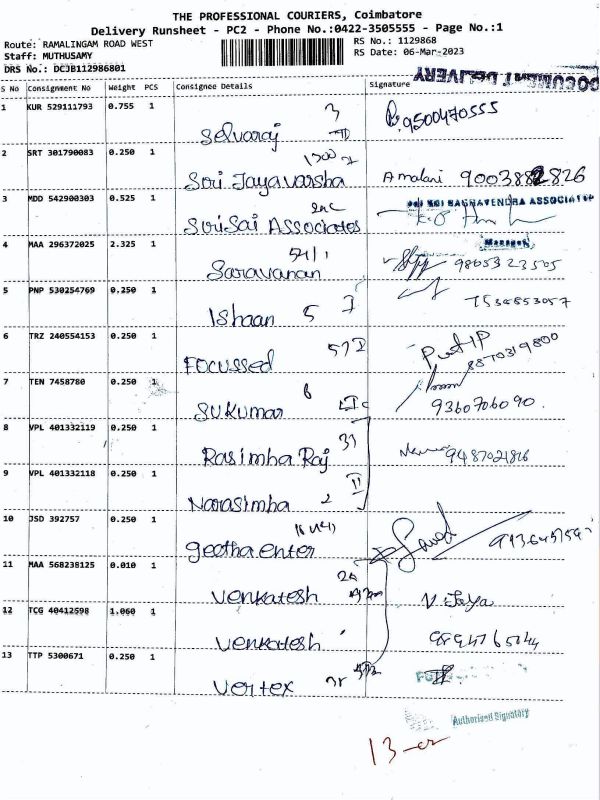 THE PROFESSIONAL COURIERS, Coimbatore
Delivery Runsheet - PC2 - Phone No.:0422-3505555 - Page No.:1
Route: RAMALINGAM ROAD WEST
RS No.: 1129868
Staff: MUTHUSAMY
RS Date: 06-Mar-2023
DRS No.: DCJB112986801
DOCUMENT DELIVERY
S No Consignment No Weight PCS Consignee Details Signature
1 KUR 529111793 0.755 1 Selvaraj 3 9500470555
2 SRT 301790083 0.250 1 Sri Jayavarsha Amalani
3 MDD 542900303 0.525 1 SriSai Associates
SRI RAGHAVENDRA ASSOCIATES
Manager
4 MAA 296372025 2.325 1 Saravanan 54/1 9865323505
5 PNP 530254769 0.250 1 Ishaan 5 I 7534853057
6 TRZ 240554153 0.250 1 Focussed 57 I 8870319800
7 TEN 7458780 0.250 1 Sukumar 6 9360706090
8 VPL 401332119 0.250 1 Rasimha Raj 31
9 VPL 401332118 0.250 1 Narasimha 2 II
10 JSD 392757 0.250 1 geetha enter
11 MAA 568238125 0.010 1 Venkatesh V. Jaya
12 TCG 40412598 1.060 1 Venkatesh
13 TTP 5300671 0.250 1 Vertex
Authorised Signatory
13